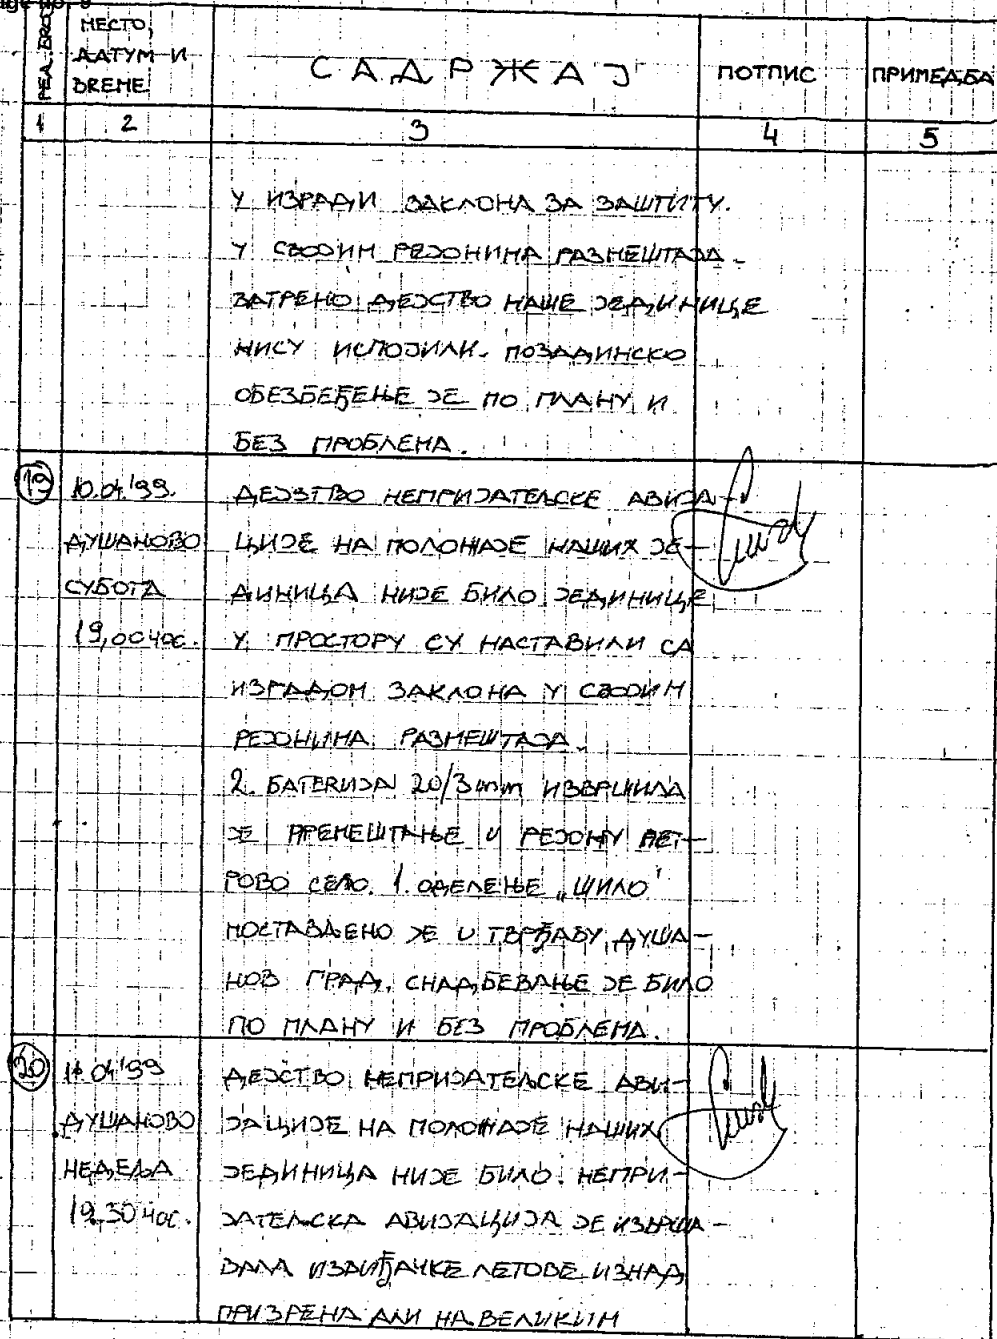 РЕД. БРОЈ
МЕСТО,
ДАТУМ И
ВРЕМЕ
САДРЖАЈ
ПОТПИС
ПРИМЕДБА
1
2
3
4
5
У ИЗРАДИ ЗАКЛОНА ЗА ЗАШТИТУ.
У СВОЈИМ РЕЈОНИМА РАЗМЕШТАЈА.
ВАТРЕНО ДЕЈСТВО НАШЕ ЈЕДИНИЦЕ
НИСУ ИСПОЈИЛИ. ПОЗАДИНСКО
ОБЕЗБЕЂЕЊЕ ЈЕ ПО ПЛАНУ И
БЕЗ ПРОБЛЕМА.
19
10.04.'99.
ДУШАНОВО
СУБОТА
19,00 ЧАС.
ДЕЈЗТВО НЕПРИЈАТЕЛСКЕ АВИЈА-
ЦИЈЕ НА ПОЛОЖАЈЕ НАШИХ ЈЕ-
ДИНИЦА НИЈЕ БИЛО. ЈЕДИНИЦЕ
У ПРОСТОРУ СУ НАСТАВИЛИ СА
ИЗРАДОМ ЗАКЛОНА У СВОЈИМ
РЕЈОНИМА РАЗМЕШТАЈА.
2. БАТЕRИЈА 20/3 mm ИЗВРШИЛА
ЈЕ ПРЕМЕШТАЊЕ U РЕЈОНУ ПЕТ-
РОВО СЕЛО. 1. ОДЕЛЕЊЕ „ШИЛО"
ПОСТАВЉЕНО ЈЕ U ТВРЂАВУ ДУША-
НОВ ГРАД. СНАДБЕВАЊЕ ЈЕ БИЛО
ПО ПЛАНУ И БЕЗ ПРОБЛЕМА.
20
11.04'99
ДУШАНОВО
НЕДЕЉА
19.30 ЧАС.
ДЕЈСТВО НЕПРИЈАТЕЛСКЕ АВИ-
ЈАЦИЈЕ НА ПОЛОЖАЈЕ НАШИХ
ЈЕДИНИЦА НИЈЕ БИЛО. НЕПРИ-
ЈАТЕЛСКА АВИЈАЦИЈА ЈЕ ИЗВРША-
ВАЛА ИЗВИЂАЧКЕ ЛЕТОВЕ ИЗНАД
ПРИЗРЕНА АЛИ НА ВЕЛИКИМ